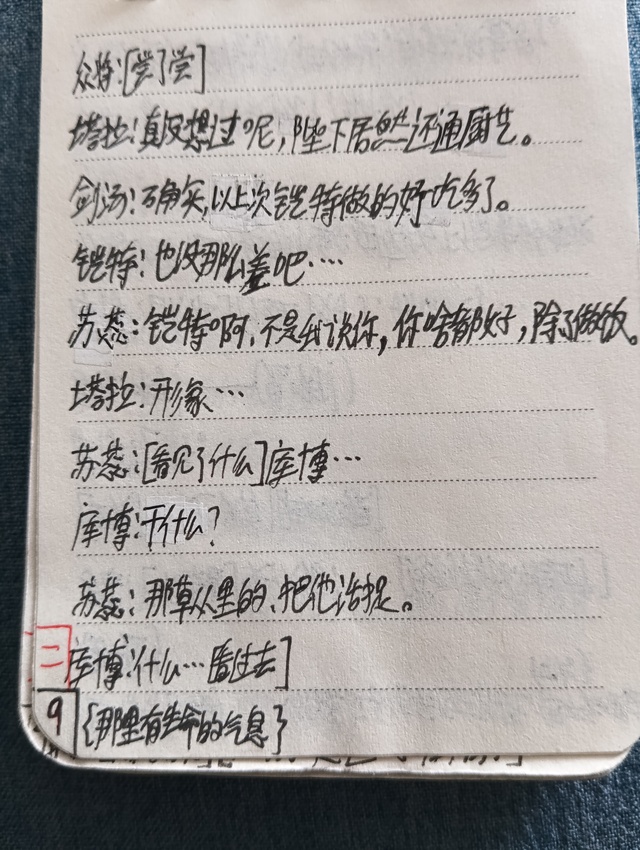 众将：[尝了尝]
塔拉：真没想过呢，陛下居然还通厨艺。
剑汤：确实，以上次铠特做的好吃多了。
铠特：也没那么差吧……
苏蕊：铠特啊，不是我说你，你啥都好，除了做饭。
塔拉：形象…
苏蕊：[看见了什么]库博…
库博：干什么？
苏蕊：那草从里的、把他活捉。
库博：什么…看过去]
{那里有生命的气息}
二
9